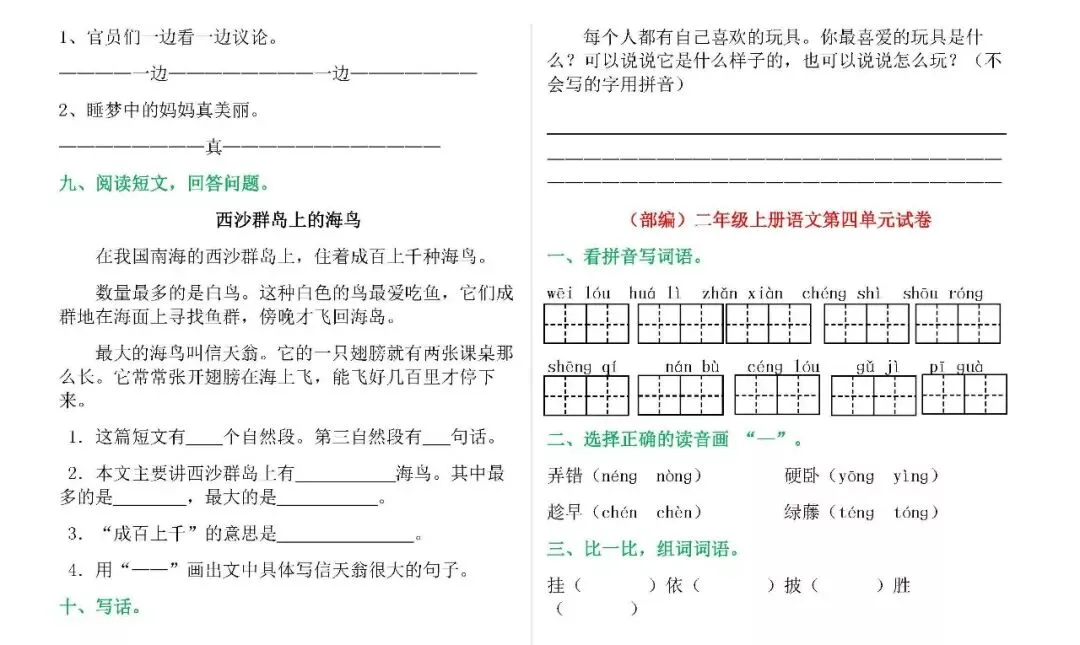 1、官员们一边看一边议论。
————一边————————一边———————
2、睡梦中的妈妈真美丽。
————————真————————————
九、阅读短文，回答问题。
西沙群岛上的海鸟
在我国南海的西沙群岛上，住着成百上千种海鸟。
数量最多的是白鸟。这种白色的鸟最爱吃鱼，它们成
群地在海面上寻找鱼群，傍晚才飞回海岛。
最大的海鸟叫信天翁。它的一只翅膀就有两张课桌那
么长。它常常张开翅膀在海上飞，能飞好几百里才停下
来。
1．这篇短文有____个自然段。第三自然段有___句话。
2．本文主要讲西沙群岛上有___________海鸟。其中最
多的是________，最大的是___________。
3．“成百上千”的意思是_______________。
4．用“——”画出文中具体写信天翁很大的句子。
十、写话。
每个人都有自己喜欢的玩具。你最喜爱的玩具是什
么？可以说说它是什么样子的，也可以说说怎么玩？（不
会写的字用拼音）
（部编）二年级上册语文第四单元试卷
一、看拼音写词语。
wēi lóu huá lì zhǎn xiàn chéng shì shōu róng
shēng qí nán bù céng lóu gǔ jì pī guà
二、选择正确的读音画 “—”。
弄错（néng nòng） 硬卧（yōng yìng）
趁早（chén chèn） 绿藤（téng tóng）
三、比一比，组词词语。
挂（ ）依（ ）披（ ）胜
（ ）